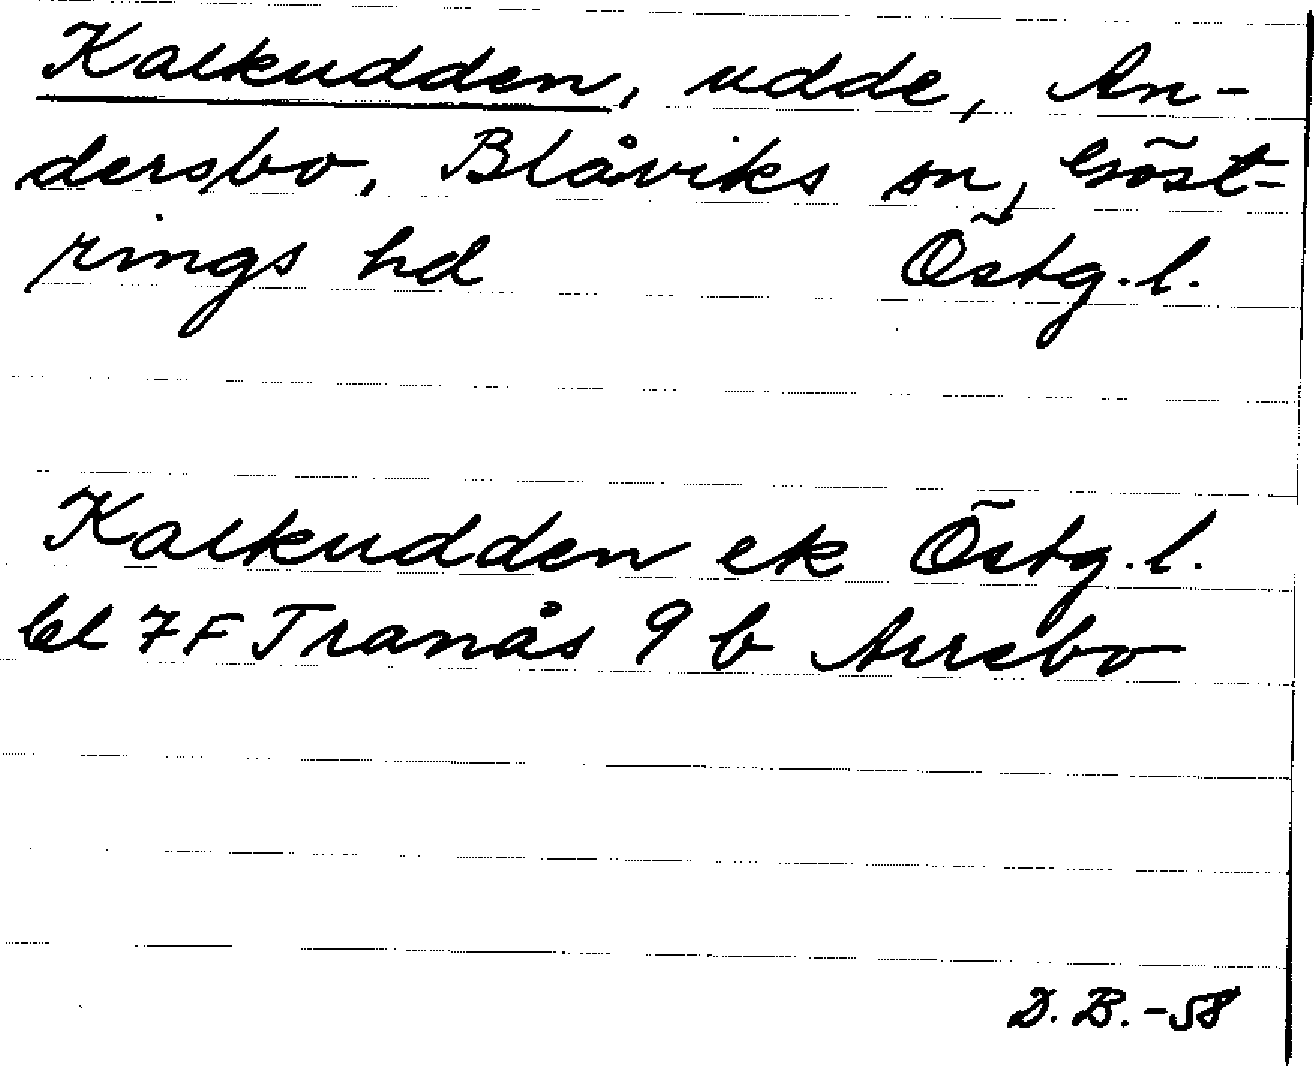 Kalkudden, udde, An-
dersbo, Blåviks sn, Göst-
rings hd Östg. l.
Kalkudden ek Östg. l.
bl 7F Tranås 9 b Arrebo
D. B. -58